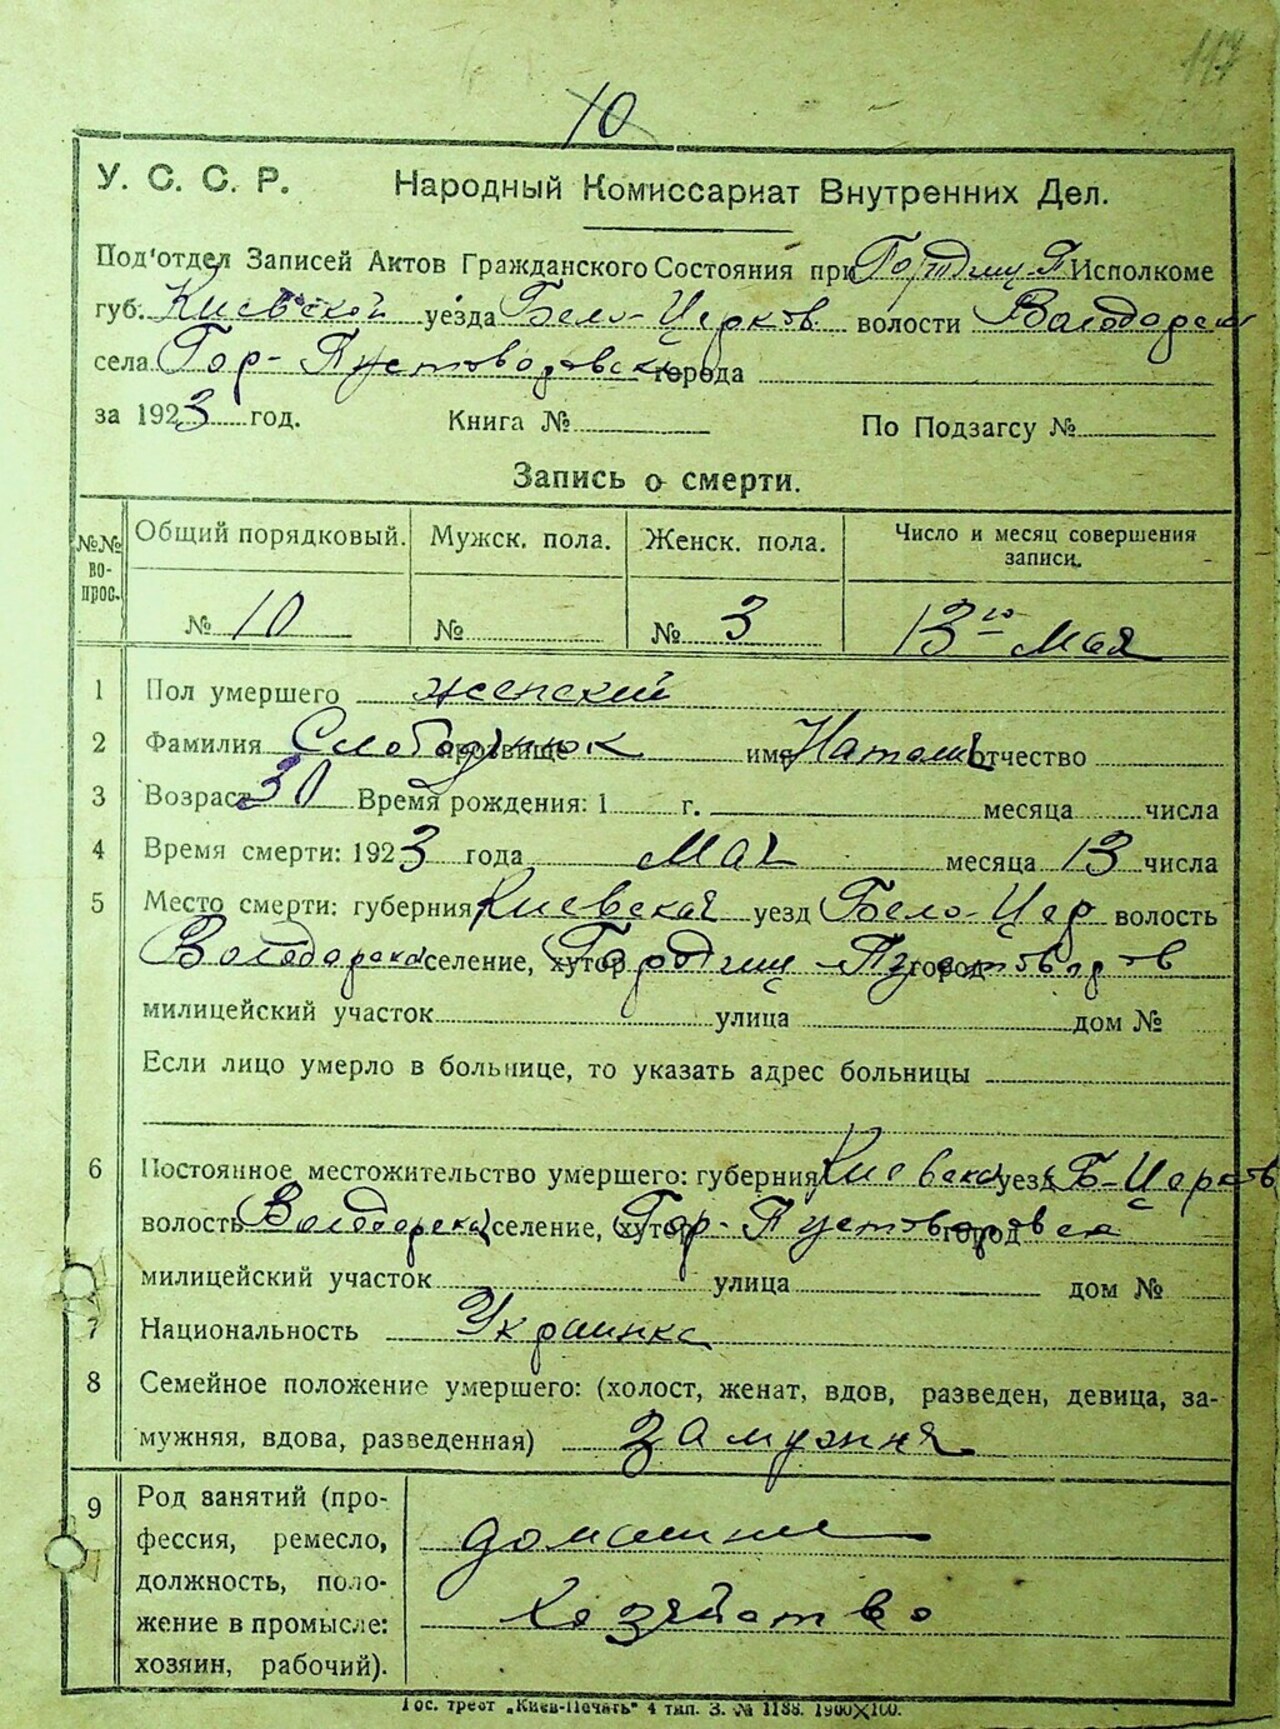 117
10
У. С. С. Р. Народный Комиссариат Внутренних Дел.
Под'отдел Записей Актов Гражданского Состояния при Исполкоме
губ. Киевской уезда Бело-Церков волости Володарск
села Гор-Пустоваровск города
за 1923 год. Книга № По Подзагсу №
Запись о смерти.
№№ во- прос. Общий порядковый. Мужск. пола. Женск. пола. Число и месяц совершения записи.
№ 10 № № 3 13го Мая
1 Пол умершего женский
2 Фамилия Слободянюк прозвище имя Наталь отчество
3 Возраст 30 Время рождения: 1 г. месяца числа
4 Время смерти: 1923 года Мая месяца 13 числа
5 Место смерти: губерния Киевская уезд Бело-Цер волость
Володарска селение, хутор Городищ-Пустоваров город
милицейский участок улица дом №
Если лицо умерло в больнице, то указать адрес больницы
6 Постоянное местожительство умершего: губерния Киевска уезд Б-Церков
волость Володарска селение, хутор Гор-Пустоваровск город
милицейский участок улица дом №
7 Национальность Украинка
8 Семейное положение умершего: (холост, женат, вдов, разведен, девица, за-
мужняя, вдова, разведенная) замужня
9 Род занятий (про-
фессия, ремесло, домашне
должность, поло-
жение в промысле: хозяйство
хозяин, рабочий).
Гос. трест „Киев-Печать" 4 тип. З. № 1188. 1900X100.